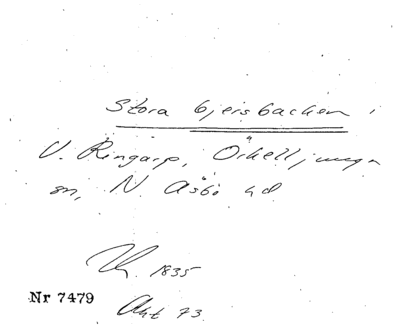 Stora Gjeisbacken i
V. Ringarp, Örkelljunga
sn, N. Åsbo hd.
1835
Nr 7479
Akt 73.